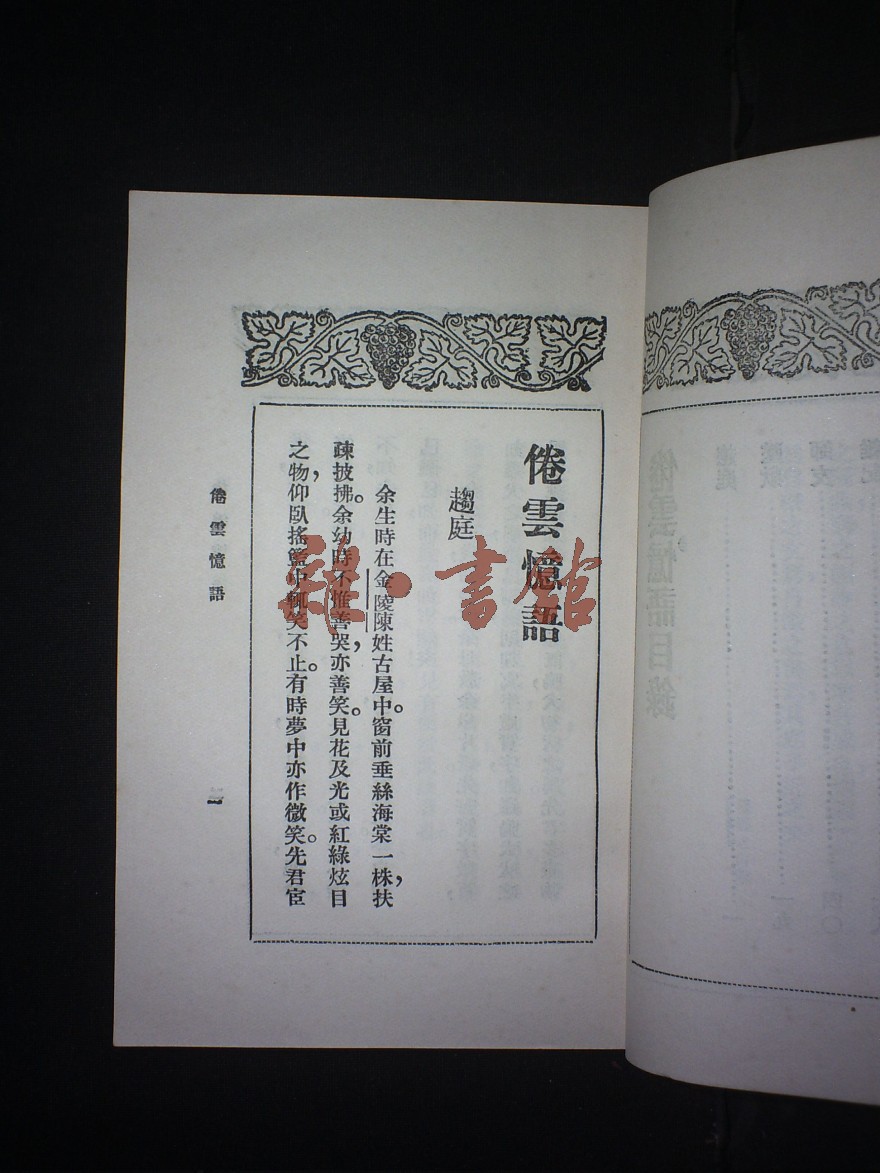 倦雲憶語目錄
倦雲憶語
趨庭
余生時在金陵陳姓古屋中。窗前垂絲海棠一株，扶
疎披拂。余幼時不惟善哭，亦善笑。見花及光或紅綠炫目
之物，仰臥搖籃中輒笑不止。有時夢中亦作微笑。先君宦
倦雲憶語
一
雜·書館